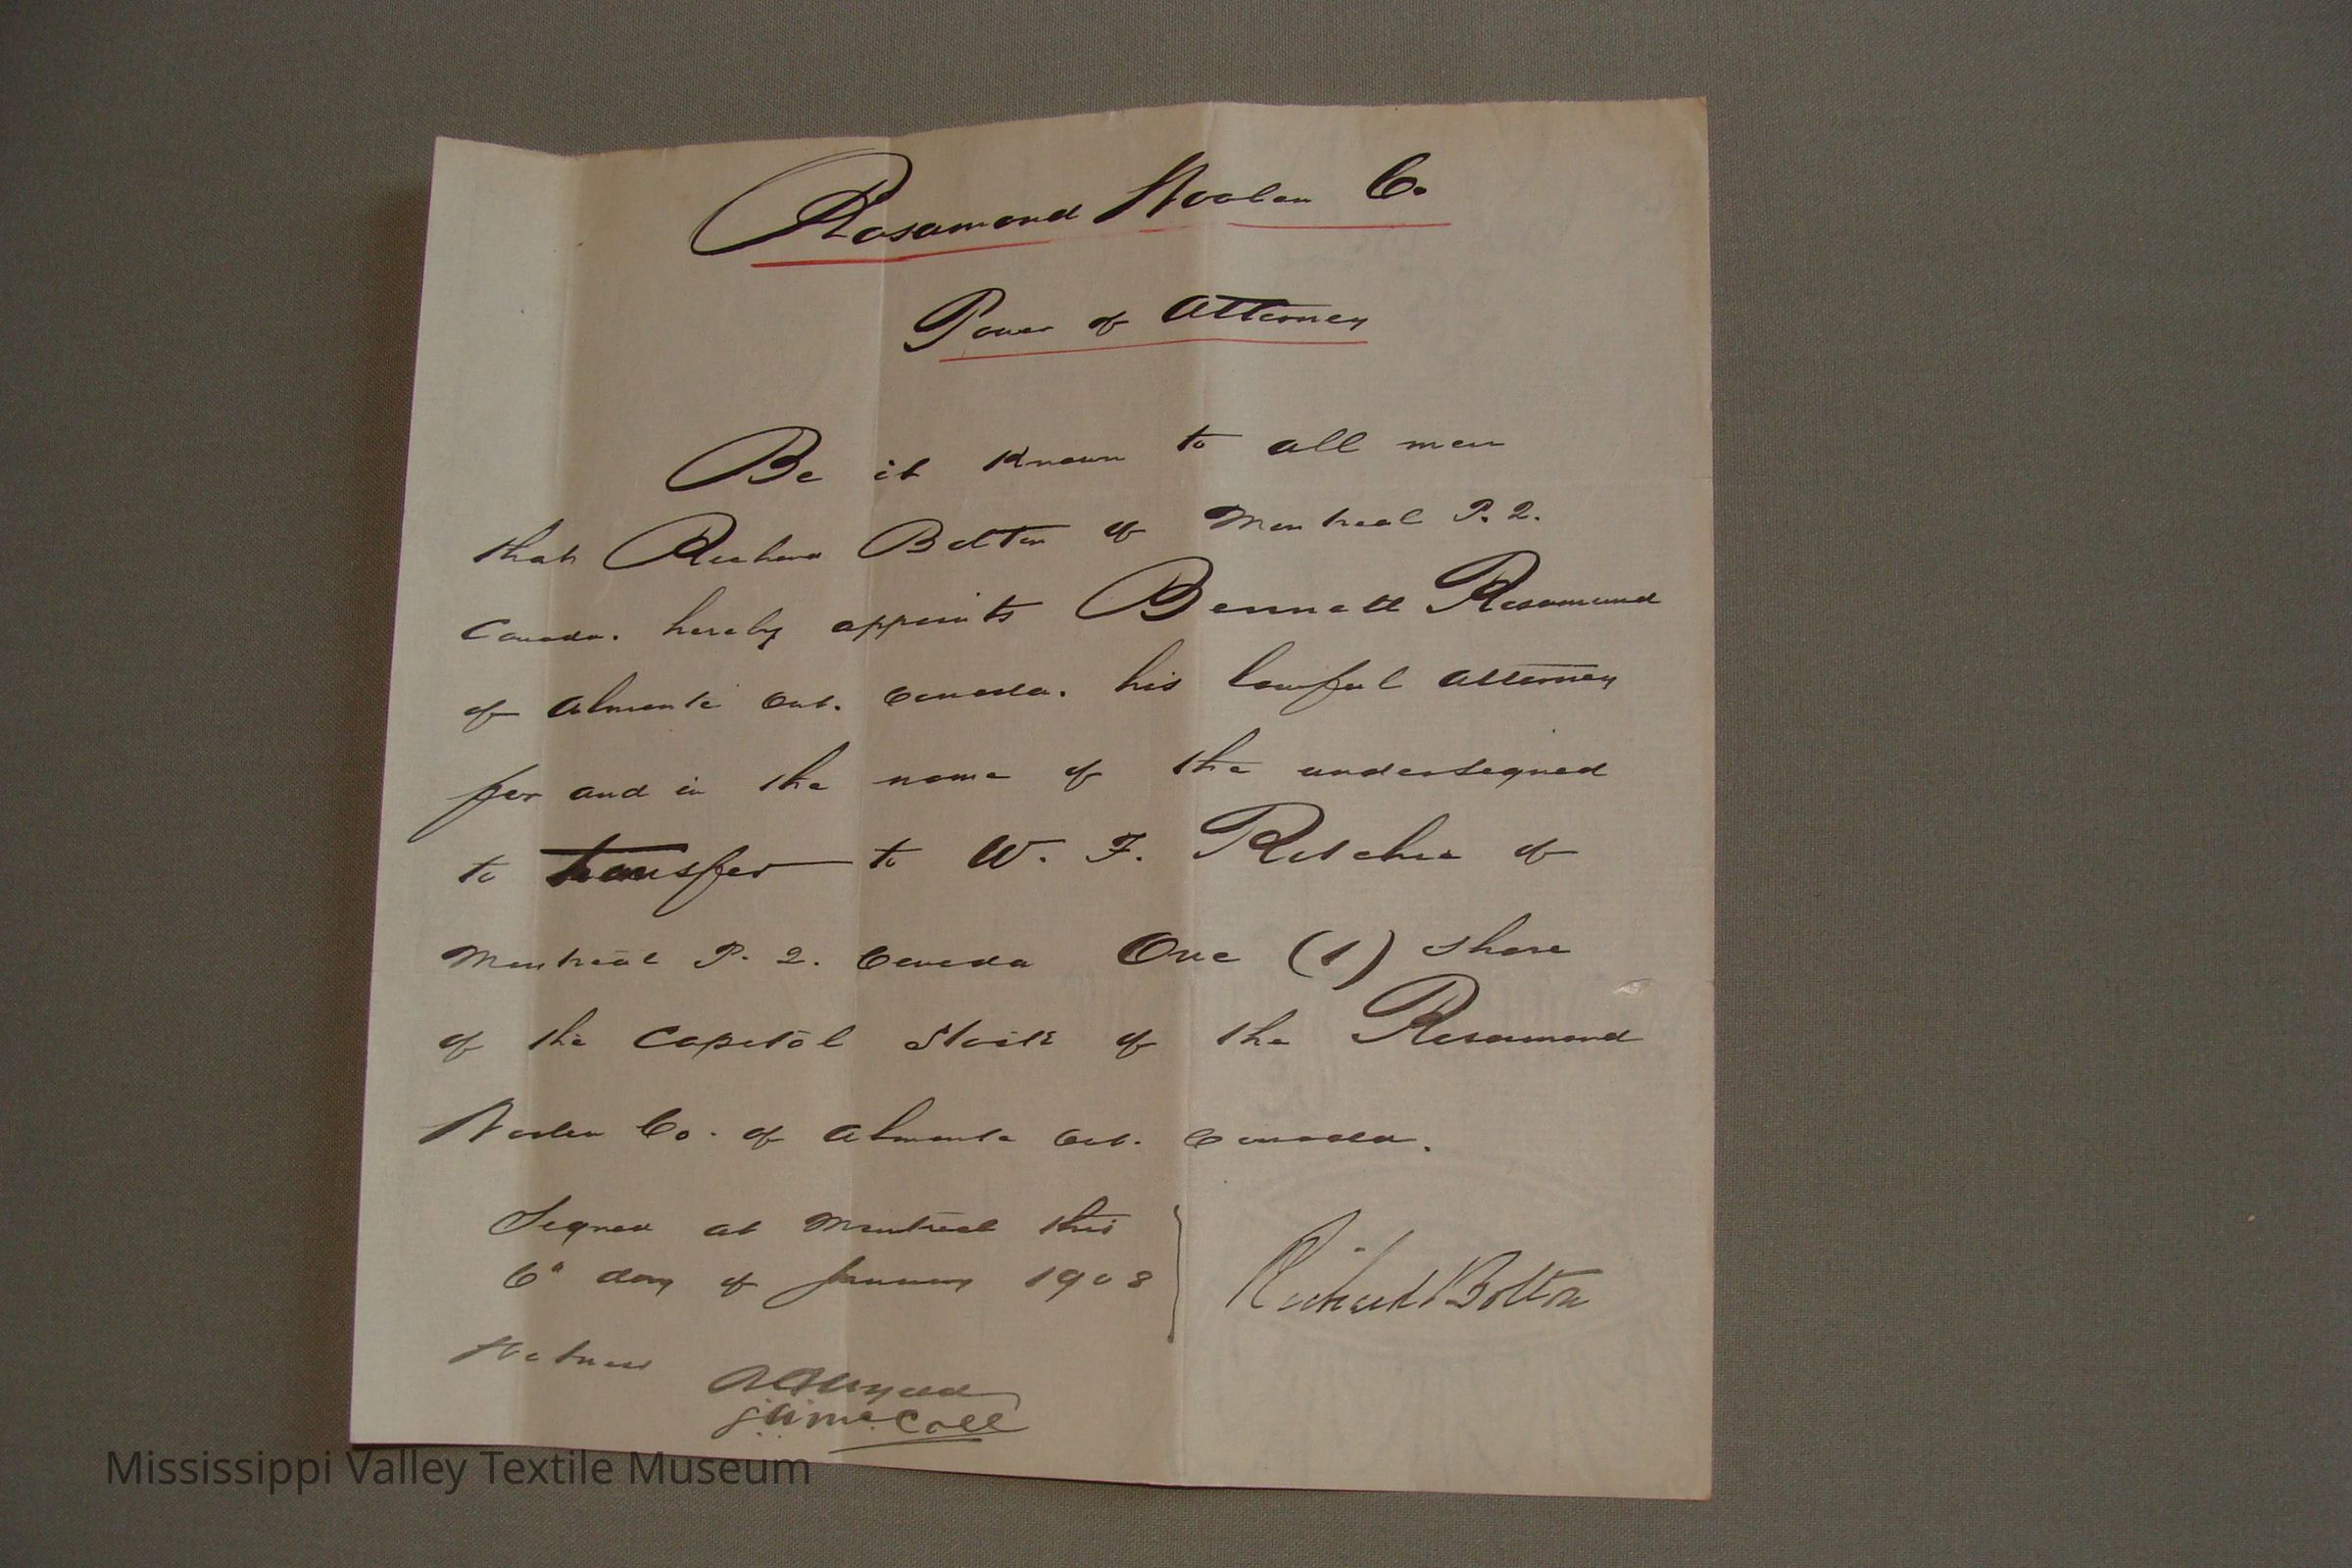 Rosamond Woolen Co.
Power of Attorney
Be it Known to all men
that Richard Bolton of Montreal P. Q.
Canada. hereby appoints Bennett Rosamond
of Almonte Ont. Canada. his lawful attorney
for and in the name of the undersigned
to transfer to W. F. Ritchie of
Montreal P. Q. Canada One (1) share
of the Capital Stock of the Rosamond
Woolen Co. of Almonte Ont. Canada.
Signed at Montreal this
6" day of January 1908
Richard Bolton
Witness
McColl
Mississippi Valley Textile Museum